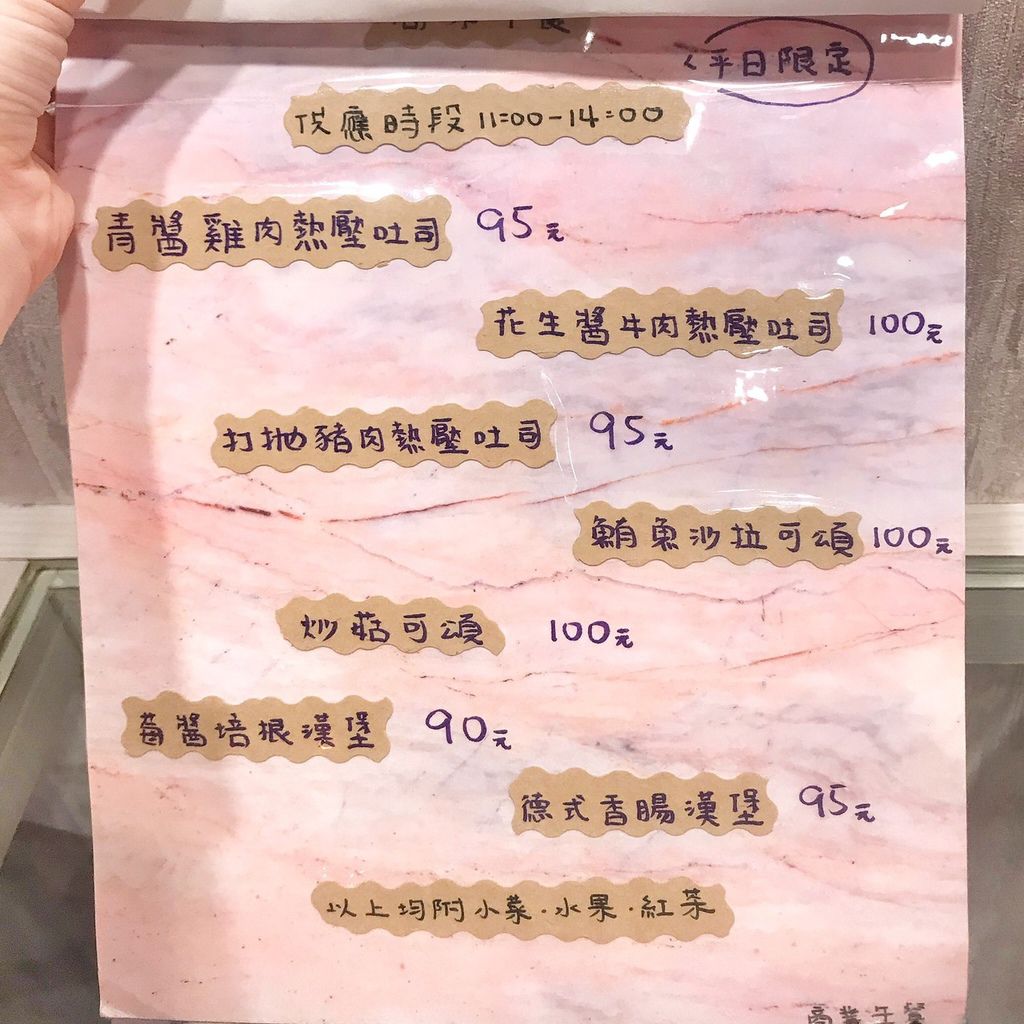 平日限定
供應時段 11:00-14:00
青醬雞肉熱壓吐司 95元
花生醬牛肉熱壓吐司 100元
打拋豬肉熱壓吐司 95元
鮪魚沙拉可頌 100元
炒菇可頌 100元
莓醬培根漢堡 90元
德式香腸漢堡 95元
以上均附小菜.水果.紅茶
商業午餐